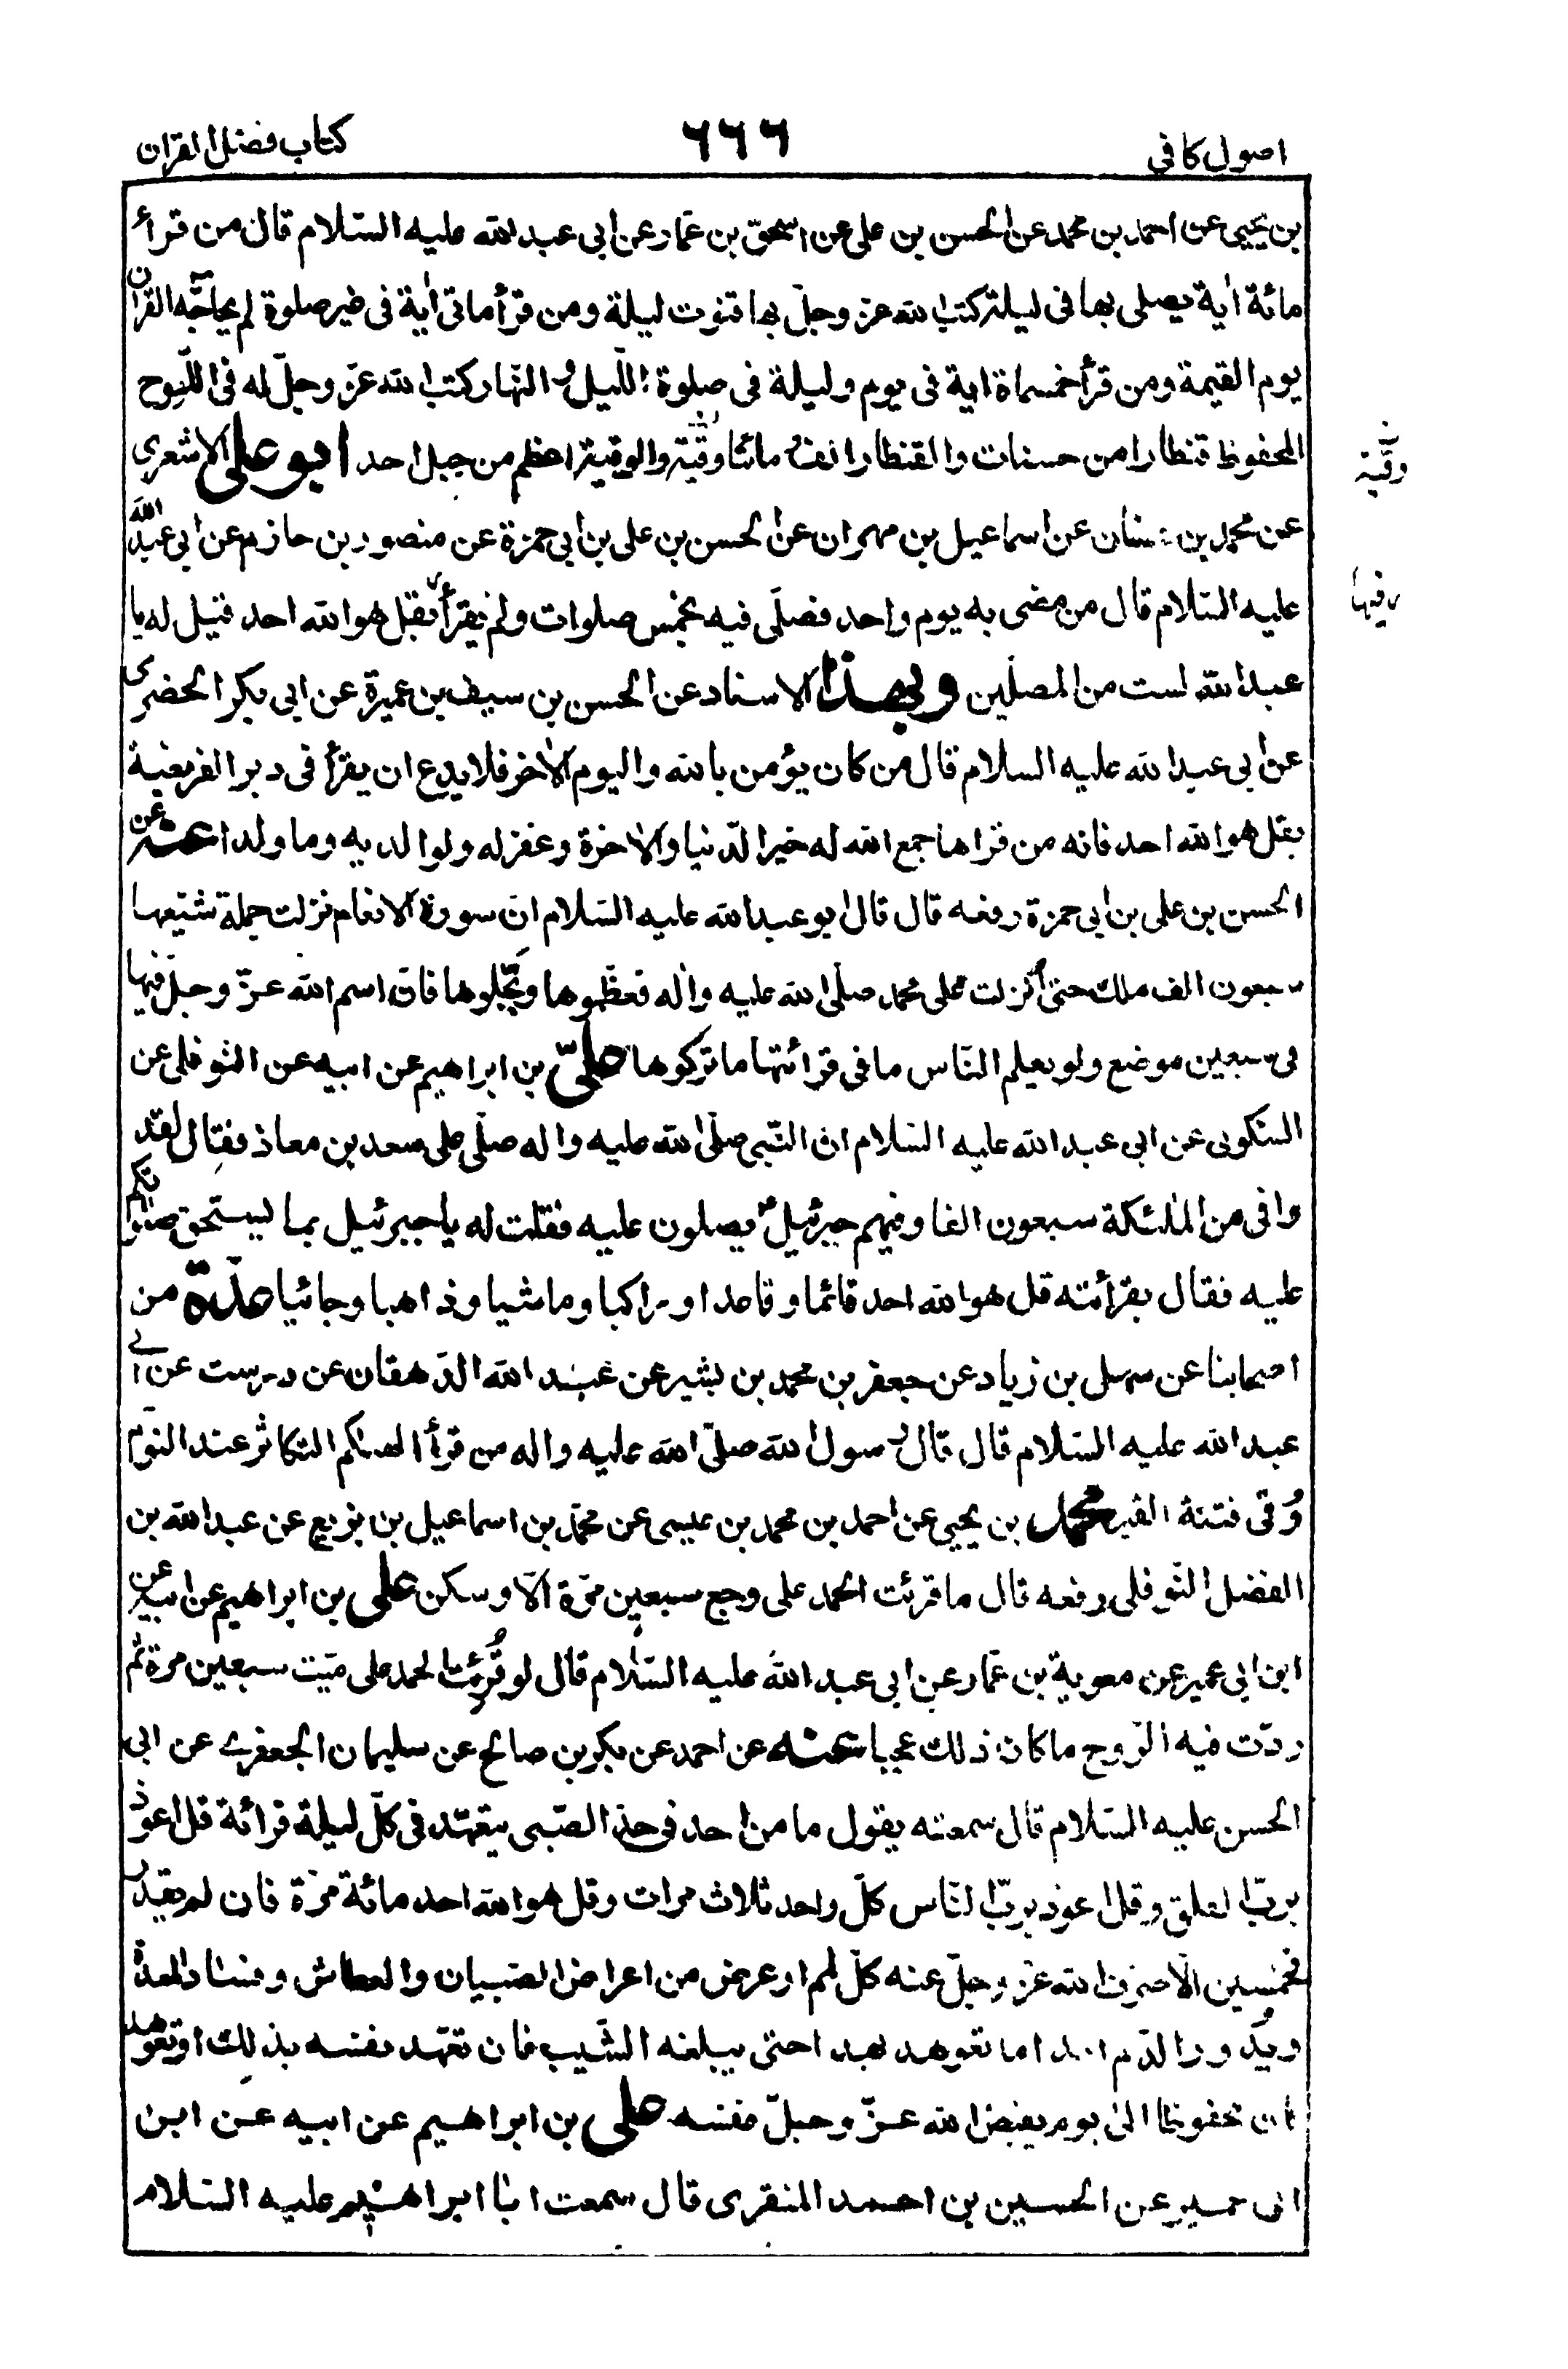 اصول كافى
٦٦٦
كتاب فضل القران
بن يحيى عن احمد بن محمد عن الحسن بن على عن اسحق بن عمّار عن ابى عبد الله عليه السّلام قال من قرأ
مائة اٰية يصلى بها فى ليلة كتب الله عز وجلّ بها قنوت ليلة ومن قرأ ماتى اٰية فى غير صلوة لم يحاجّه القراٰن
يوم القيمة ومن قرأ خمسماة اية فى يوم وليلة فى صلوة اللّيل و النّهار كتب الله عزّ وجلّ له فى اللّوح
المحفوظ قنطارا من حسنات والقنطار الف و مائتا وقيّة والوقية اعظم من جبل احد ابو على الاشعرى
وقيّة
عن محمد بن سنان عن اسماعيل بن مهران عن الحسن بن على بن ابى حمزة عن منصور بن حازم عن ابى عبد الله
عليه السّلام قال من مضى به يوم واحد فصلّى فيه بخمس صلوات ولم يقرأ بقل هو الله احد قيل له يا
فيها
عبد الله لست من المصلّين وبهذا الاسناد عن الحسن بن سيف بن عميرة عن ابى بكر الحضرمى
عن ابى عبد الله عليه السلام قال من كان يؤمن بالله واليوم الاٰخر فلا يدع ان يقرأ فى دبر الفريضة
بقل هو الله احد فانه من قراها جمع الله له خير الدّنيا والاٰخرة وغفر له ولوالديه وما ولدا عنه عن
الحسن بن على بن ابى حمزة رفعه قال قال ابو عبد الله عليه السّلام انّ سورة الانعام نزلت جملة شيّعها
سبعون الف ملك حتى اُنزلت على محمد صلّى الله عليه واٰله فعظّموها وبجّلوها فانّ اسم الله عزّ وجلّ فيها
فى سبعين موضع ولو يعلم النّاس ما فى قرائتها ما تركوها علىّ بن ابراهيم عن ابيه عن النّوفلى عن
السّكونى عن ابى عبد الله عليه السّلام انّ النّبى صلّى الله عليه واله صلّى على سعد بن معاذ فقال لقد
وافى من الملئكة سبعون الفا وفيهم جبرئيلؑ يصلون عليه فقلت له يا جبرئيل بما يستحق صلوتكم
عليه فقال بقرائته قل هو الله احد قائما وقاعدا وراكبا وماشيا وذاهبا وجائيا عدّة من
اصحابنا عن سهل بن زياد عن جعفر بن محمد بن بشير عن عبيد الله الدّهقان عن درست عن ابى
عبد الله عليه السّلام قال قال رسول الله صلّى الله عليه واله من قرأ الهٰىكم التكاثر عند النّوم
وُقى فتنة القبر محمد بن يحيى عن احمد بن محمد بن عيسى عن محمّد بن اسماعيل بن بزيع عن عبد الله بن
الفضل النّوفلى رفعه قال ما قرئت الحمد على وجع سبعين مرّة الّا وسكن على بن ابراهيم عن ابيه عن
ابن ابى عمير عن معوية بن عمّار عن ابى عبد الله عليه السّلام قال لو قُرِئت الحمد على ميّت سبعين مرة ثم
ردّت فيه الرّوح ما كان ذلك عجبا عنه عن احمد عن بكر بن صالح عن سليمان الجعفرى عن ابى
الحسن عليه السّلام قال سمعته يقول ما من احد فى حدّ الصّبى يتعهّد فى كلّ ليلة قرائة قل اعوذ
بربّ الفلق وقل اعوذ بربّ النّاس كلّ واحد ثلاث مرات وقل هو الله احد مائة مرّة فان لم يقدر
فخمسين الّا صرف الله عزّ وجلّ عنه كلّ لمم او عرض من اعراض الصّبيان والعطاش وفساد المعدة
وبُدور الدّم ابدا ما تعوهد بهذا حتى يبلغه الشّيب فان تعهّد نفسه بذلك او تعوهد
كان محفوظا الى يوم يقبض الله عزّ وجلّ نفسه على بن ابراهيم عن ابيه عن ابن
ابى عمير عن الحسين بن احمد المنقرى قال سمعت ابا ابراهيم عليه السّلام